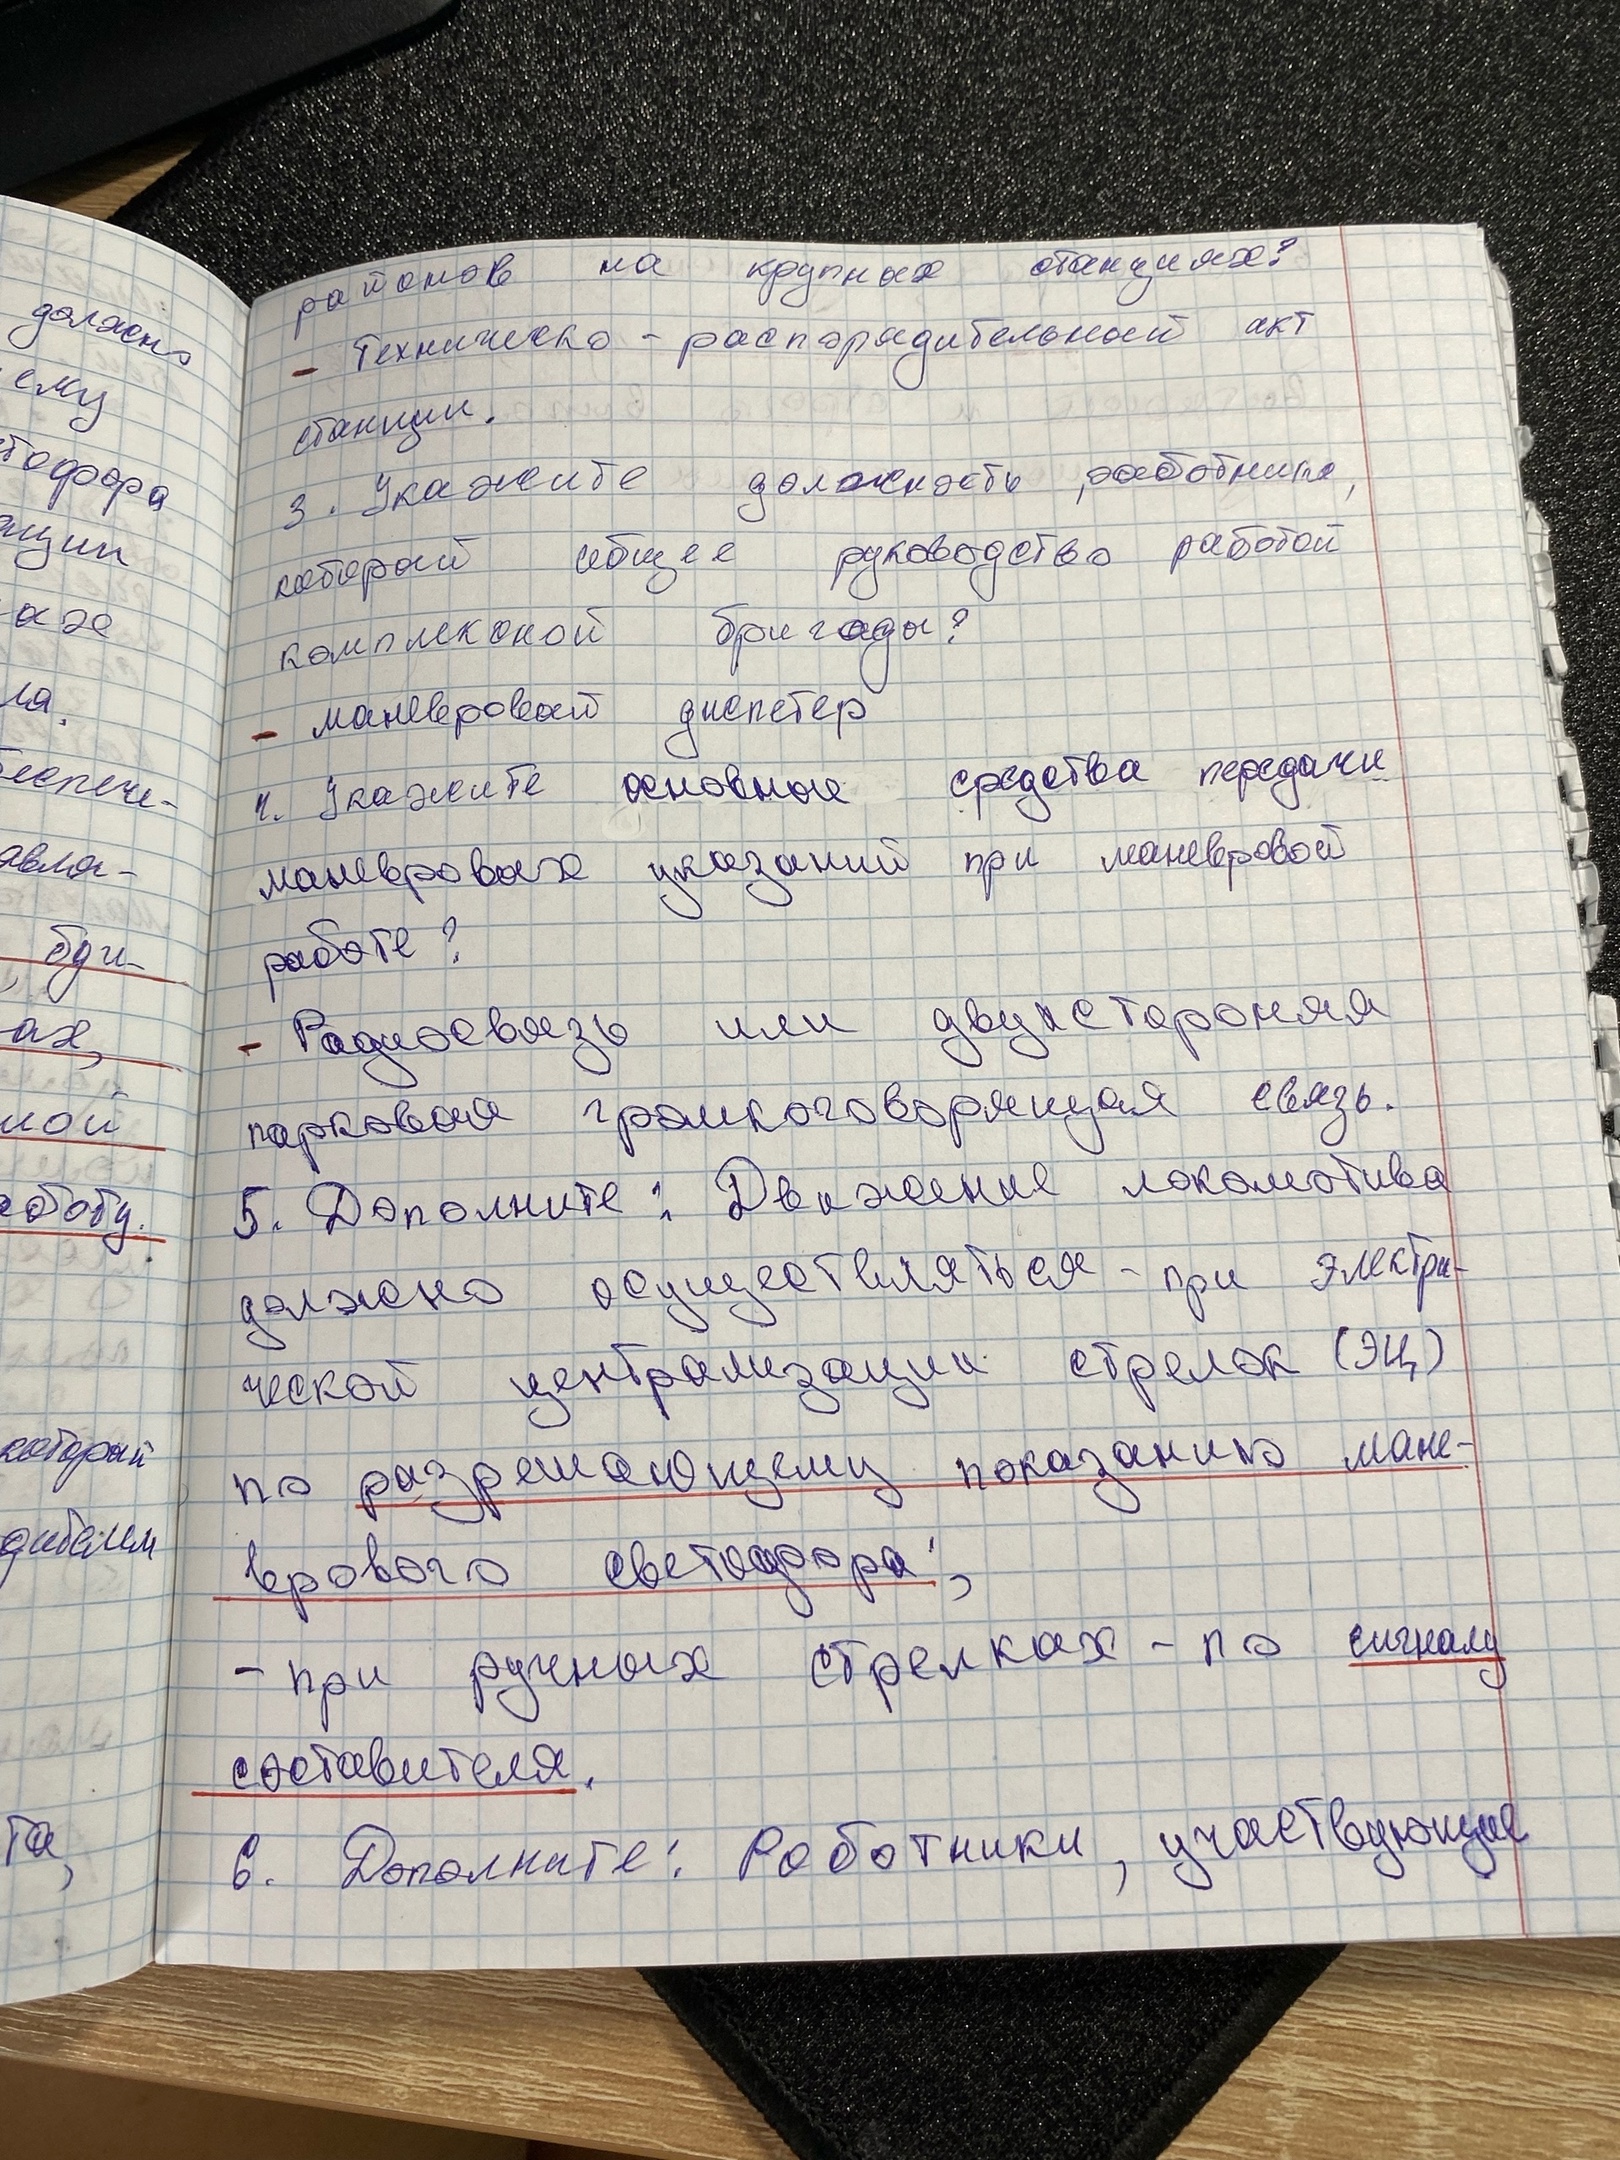 должно
ему
тофора
нции
ах
ла.
беспече-
авма-
, бди-
ах,
ной
работу.
который
дителем
та,
районов на крупных станциях?
- Техническо-распорядительный акт
станции.
3. Укажите должность работника,
который общее руководство работой
комплексной бригады?
- маневровый диспетер
4. Укажите основные средства передачи
маневровых указаний при маневровой
работе?
- Радиосвязь или двухстороняя
парковая громкоговорящая связь.
5. Дополните: Движение локомотива
должно осуществляться - при электри-
ческой централизации стрелок (ЭЦ)
по разрешающему показанию мане-
врового светофора;
- при ручных стрелках - по сигналу
составителя.
6. Дополните: Работники, участвующие